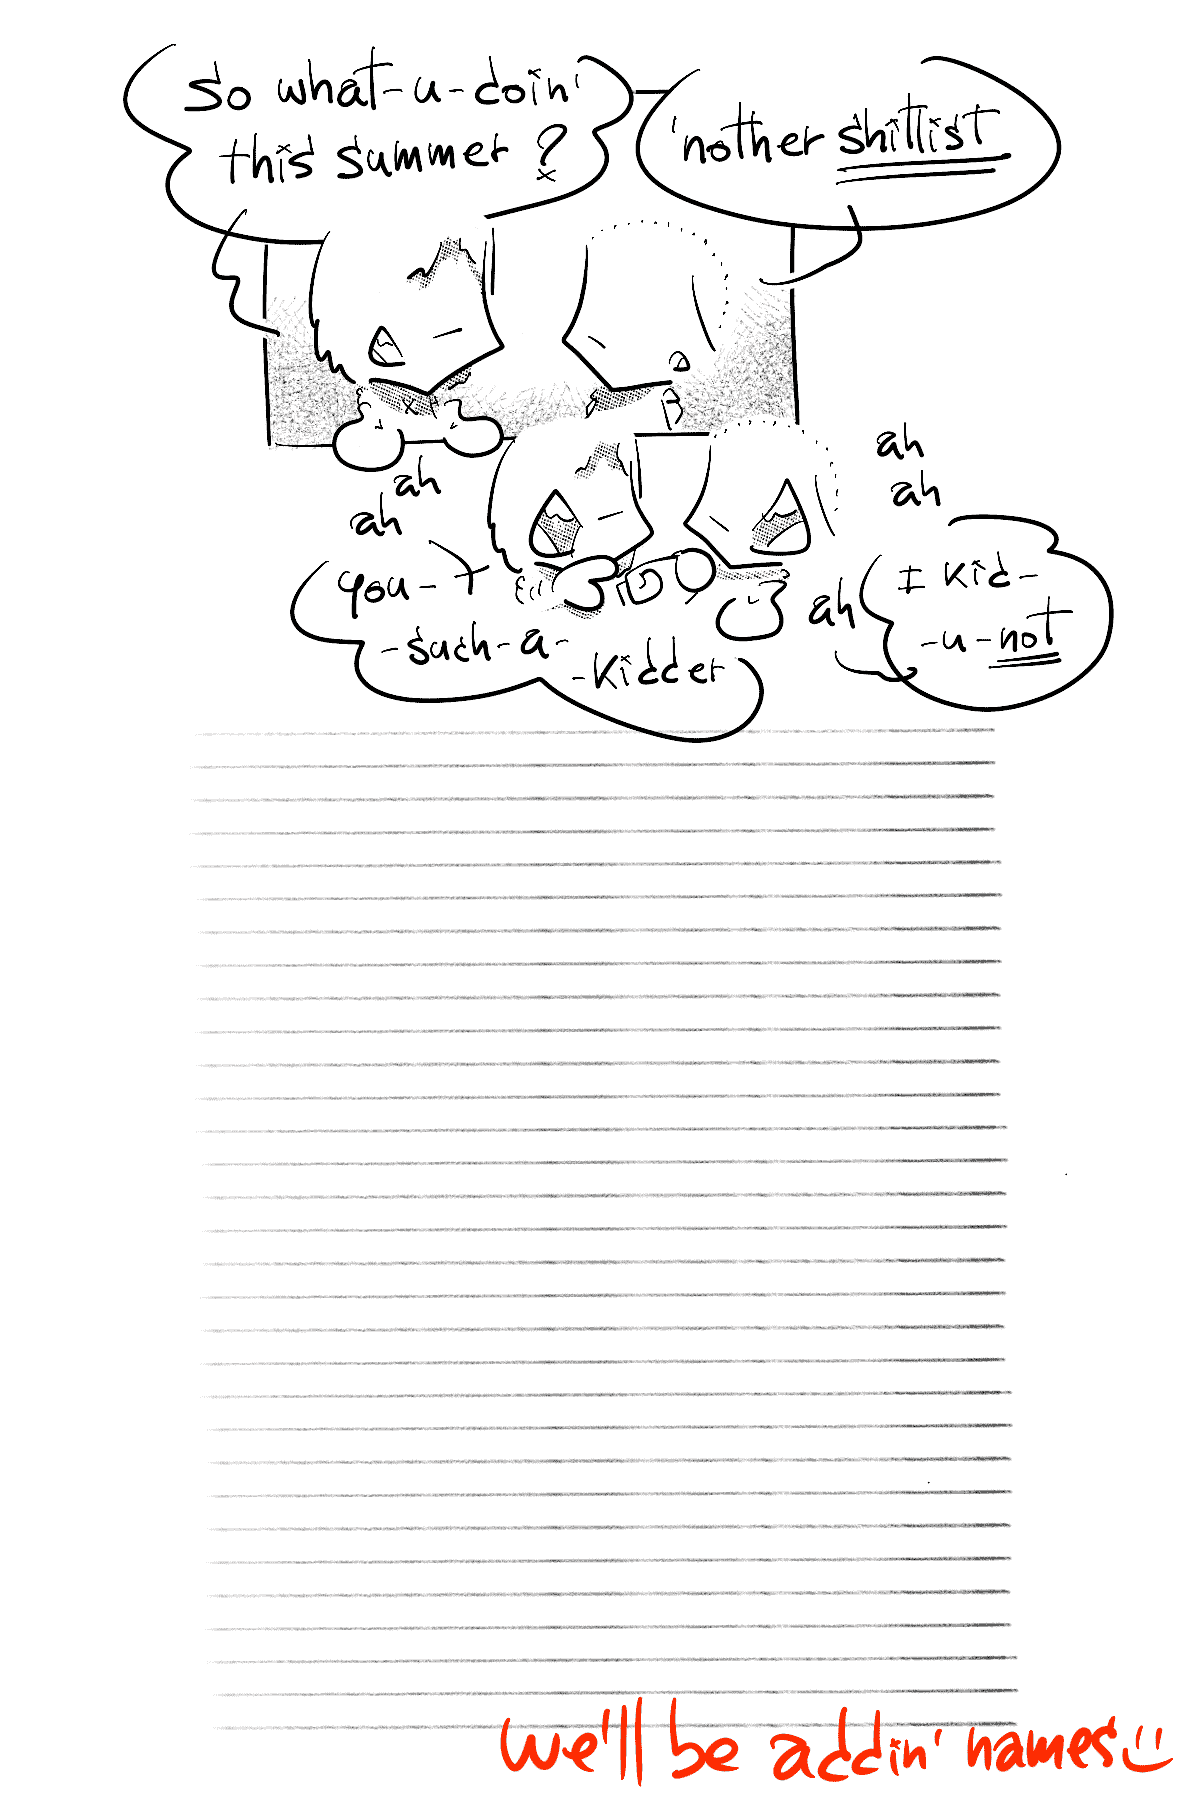 so what-u-doin'
this summer?
'nother shitlist
ah
ah
you-r
-such-a-
-kidder
ah
ah
ah
I kid-
-u-not
we'll be addin' names